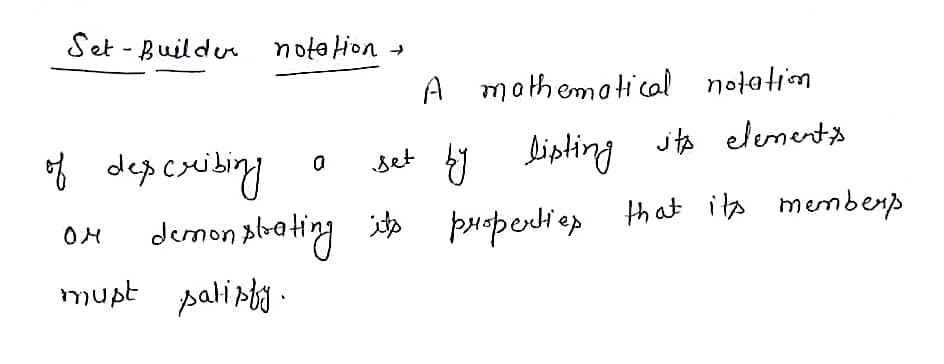 Set-Builder notation →
A mathematical notation
of describing a set by listing its elements
or demonstrating its properties that its members
must satisfy.